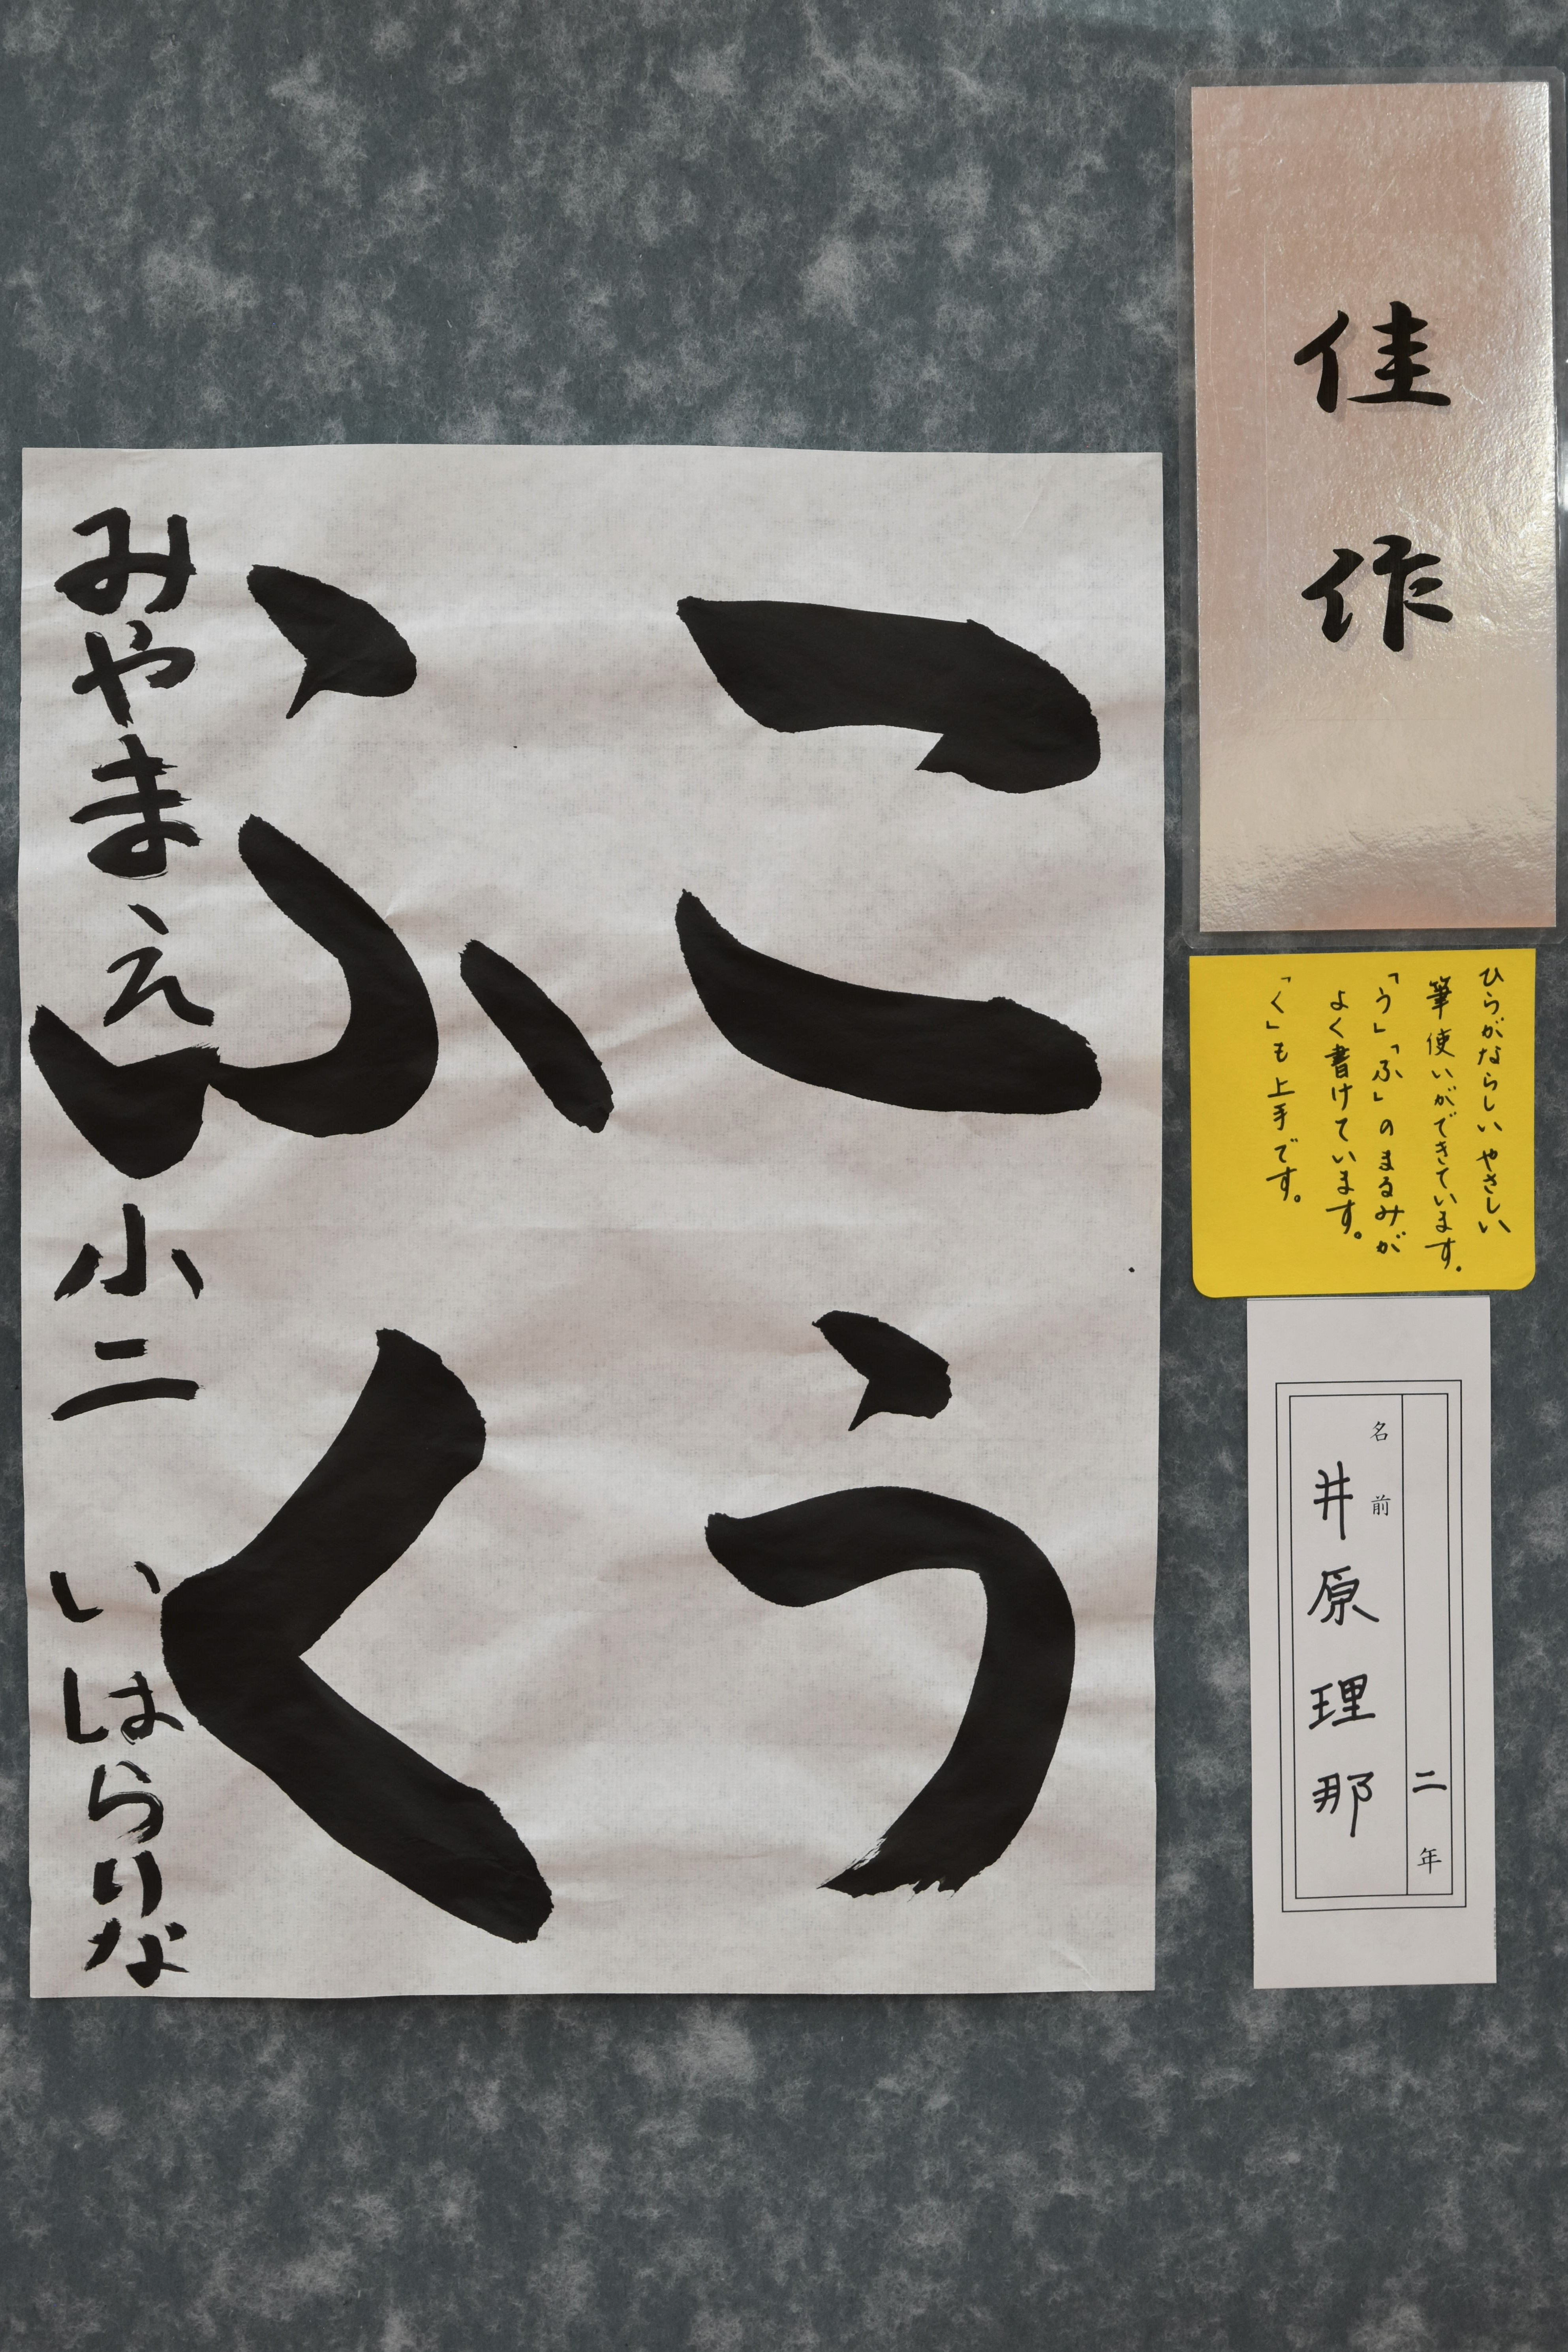 佳作
ひらがならしいやさしい
筆使いができています。
「う」「ふ」のまるみが
よく書けています。
「く」も上手です。
二年
名前
井原理那
こう
ふく
みやまえ小二 いはらりな